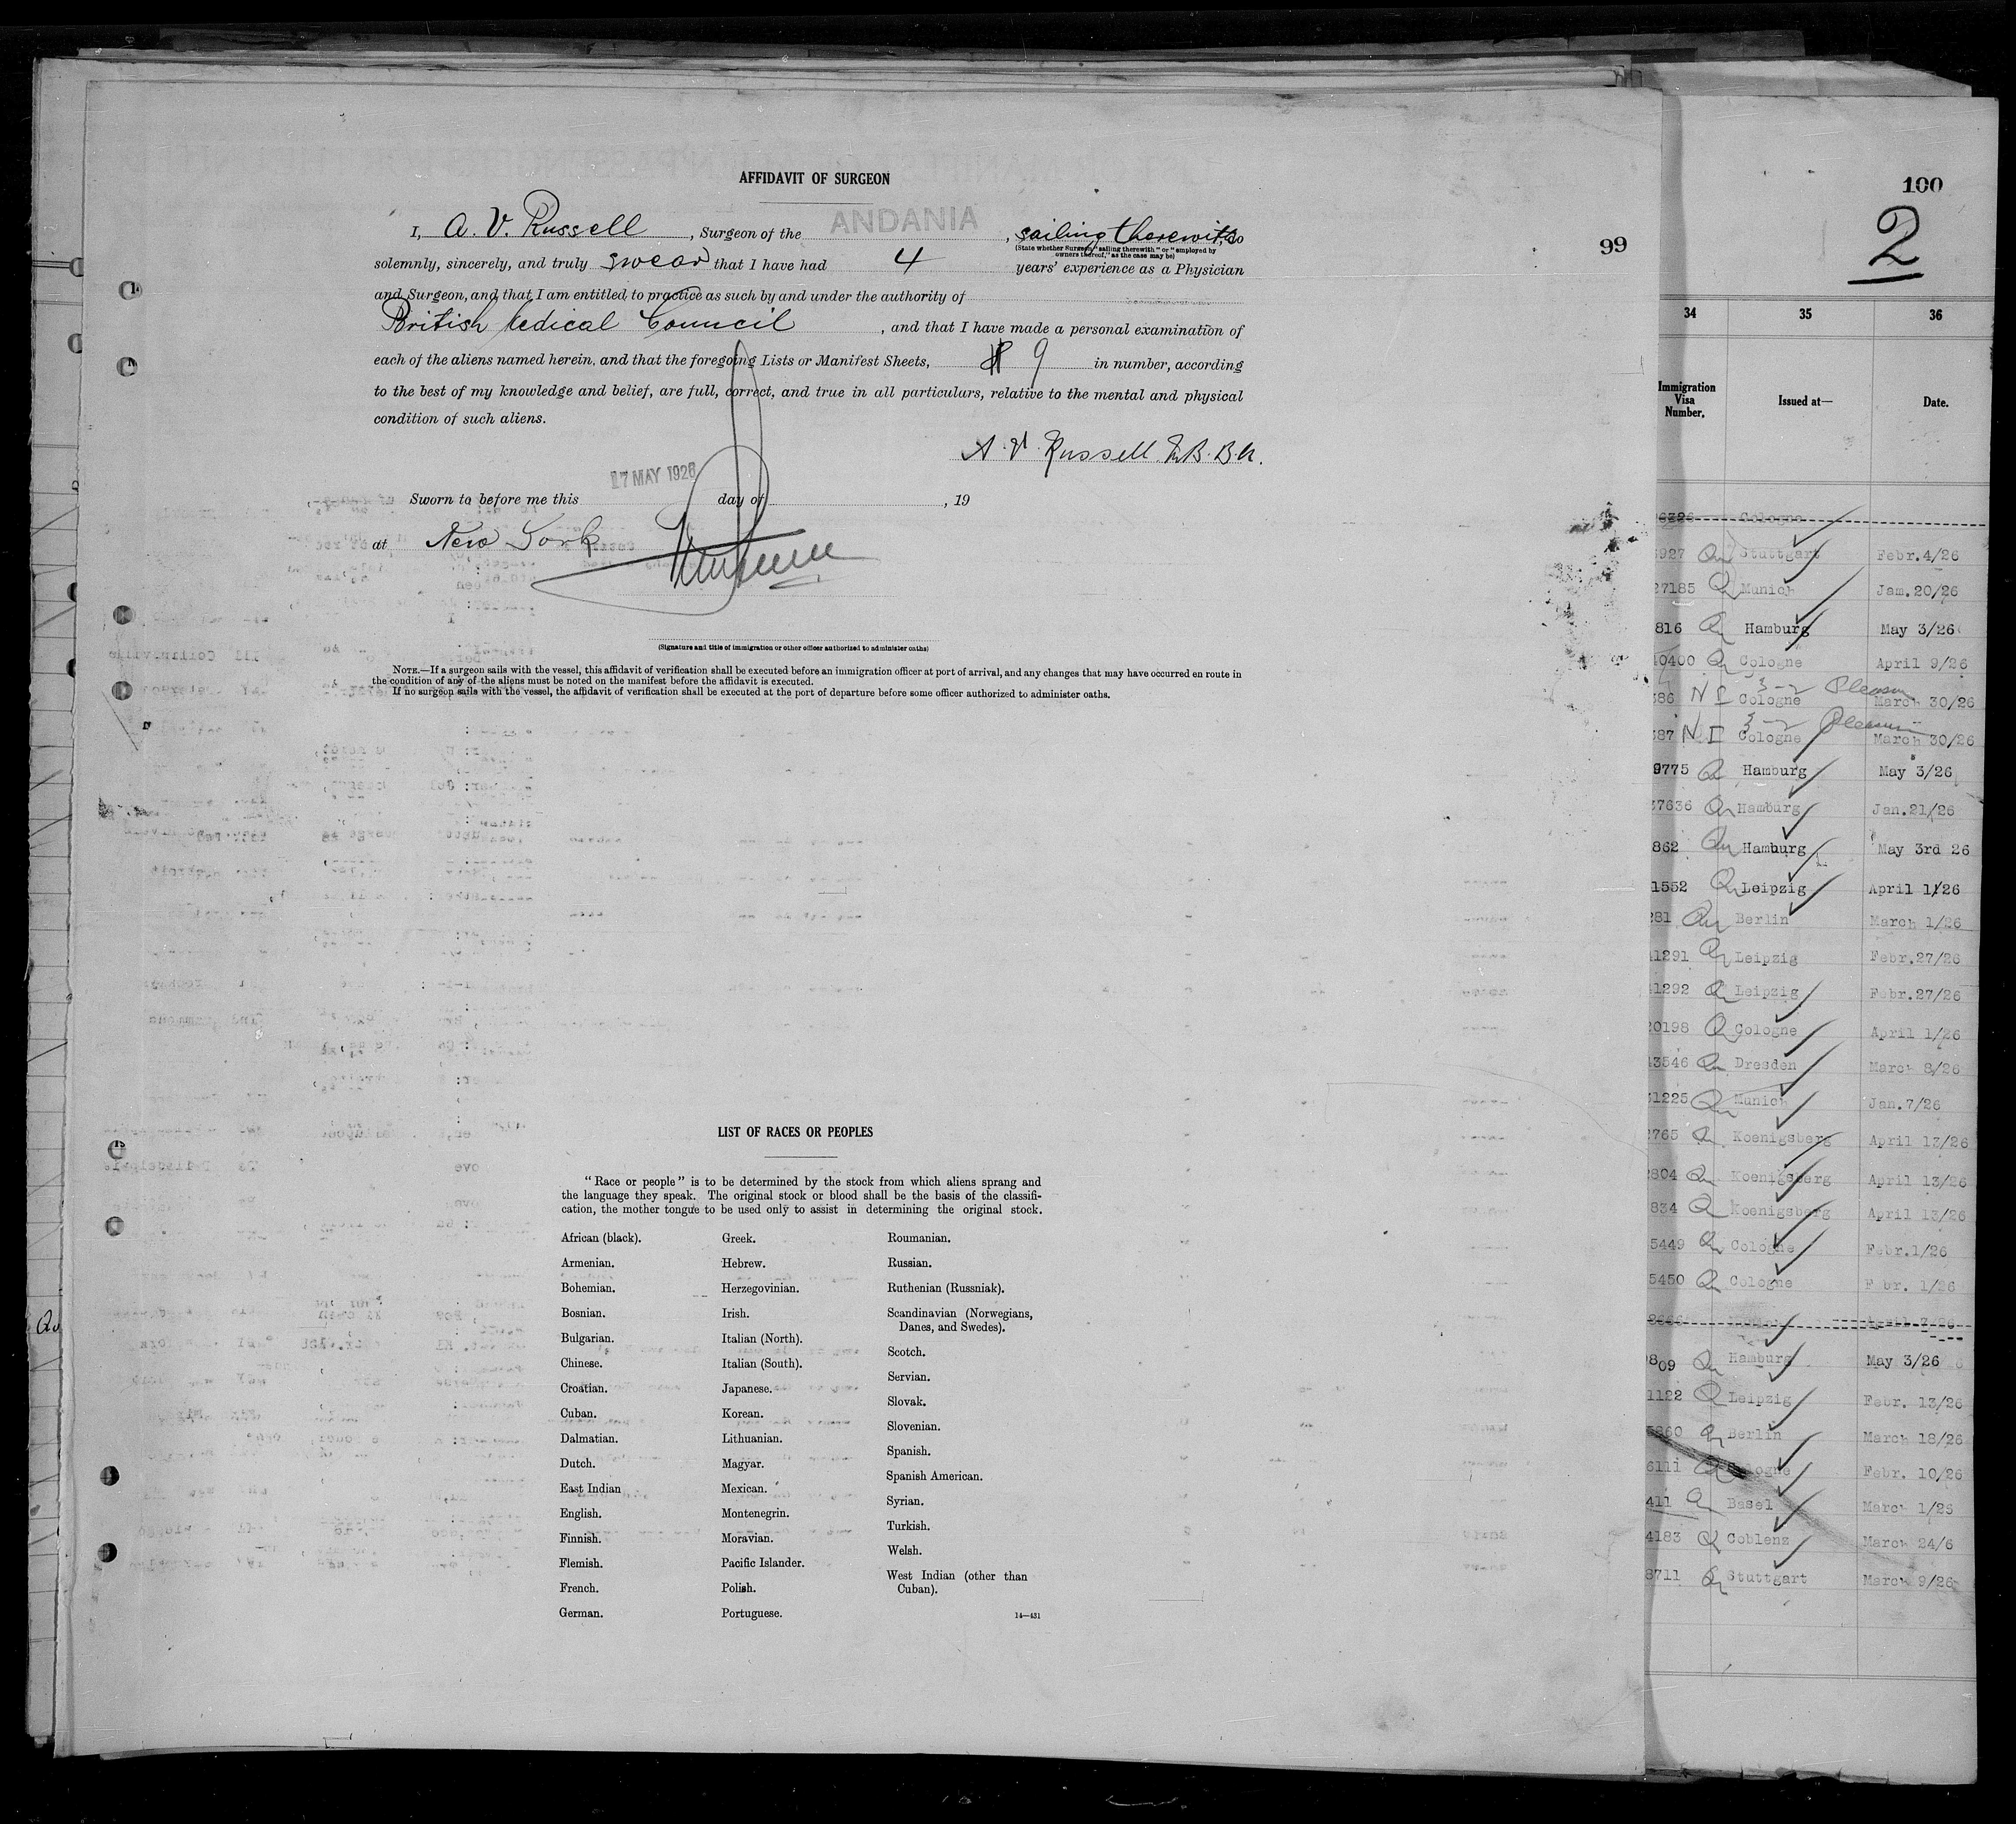 AFFIDAVIT OF SURGEON
I, A. V. Russell, Surgeon of the ANDANIA, sailing therewith, do
(State whether Surgeon "sailing therewith" or "employed by
owners thereof," as the case may be)
solemnly, sincerely, and truly swear that I have had 4 years' experience as a Physician
and Surgeon, and that I am entitled to practice as such by and under the authority of
British Medical Council, and that I have made a personal examination of
each of the aliens named herein, and that the foregoing Lists or Manifest Sheets, 9 in number, according
to the best of my knowledge and belief, are full, correct, and true in all particulars, relative to the mental and physical
condition of such aliens.
A. V. Russell M.B. B.Ch.
Sworn to before me this 17 MAY 1926 day of , 19
at New York
(Signature and title of immigration or other officer authorized to administer oaths)
NOTE.—If a surgeon sails with the vessel, this affidavit of verification shall be executed before an immigration officer at port of arrival, and any changes that may have occurred en route in
the condition of any of the aliens must be noted on the manifest before the affidavit is executed.
If no surgeon sails with the vessel, the affidavit of verification shall be executed at the port of departure before some officer authorized to administer oaths.
LIST OF RACES OR PEOPLES
"Race or people" is to be determined by the stock from which aliens sprang and
the language they speak. The original stock or blood shall be the basis of the classifi-
cation, the mother tongue to be used only to assist in determining the original stock.
African (black).
Armenian.
Bohemian.
Bosnian.
Bulgarian.
Chinese.
Croatian.
Cuban.
Dalmatian.
Dutch.
East Indian
English.
Finnish.
Flemish.
French.
German.
Greek.
Hebrew.
Herzegovinian.
Irish.
Italian (North).
Italian (South).
Japanese.
Korean.
Lithuanian.
Magyar.
Mexican.
Montenegrin.
Moravian.
Pacific Islander.
Polish.
Portuguese.
Roumanian.
Russian.
Ruthenian (Russniak).
Scandinavian (Norwegians,
Danes, and Swedes).
Scotch.
Servian.
Slovak.
Slovenian.
Spanish.
Spanish American.
Syrian.
Turkish.
Welsh.
West Indian (other than
Cuban).
14—431
99
100
2
34 35 36
Immigration Visa Number. Issued at— Date.
Cologne
927 Stuttgart Febr.4/26
27185 Munich Jam.20/26
816 Hamburg May 3/26
40400 Cologne April 9/26
386 N I Cologne 3-2 Pleasure March 30/26
387 N I Cologne 3-2 Pleasure March 30/26
9775 Hamburg May 3/26
37636 Hamburg Jan.21/26
862 Hamburg May 3rd 26
1552 Leipzig April 1/26
281 Berlin March 1/26
1291 Leipzig Febr.27/26
1292 Leipzig Febr.27/26
20198 Cologne April 1/26
3546 Dresden March 8/26
1225 Munich Jan.7/26
2765 Koenigsberg April 13/26
2804 Koenigsberg April 13/26
834 Koenigsberg April 13/26
5449 Cologne Febr.1/26
5450 Cologne F br. 1/26
April 7/26
809 Hamburg May 3/26
1122 Leipzig Febr. 13/26
860 Berlin March 18/26
6111 Cologne Febr. 10/26
411 Basel March 1/26
4183 Coblenz March 24/6
8711 Stuttgart March 9/26